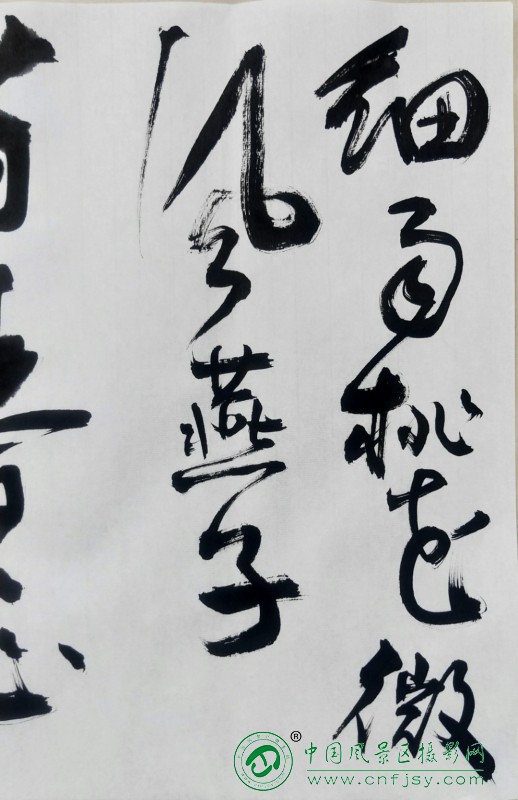 细雨桃花微
风燕子
®中国风景区摄影网
www.cnfjsy.com